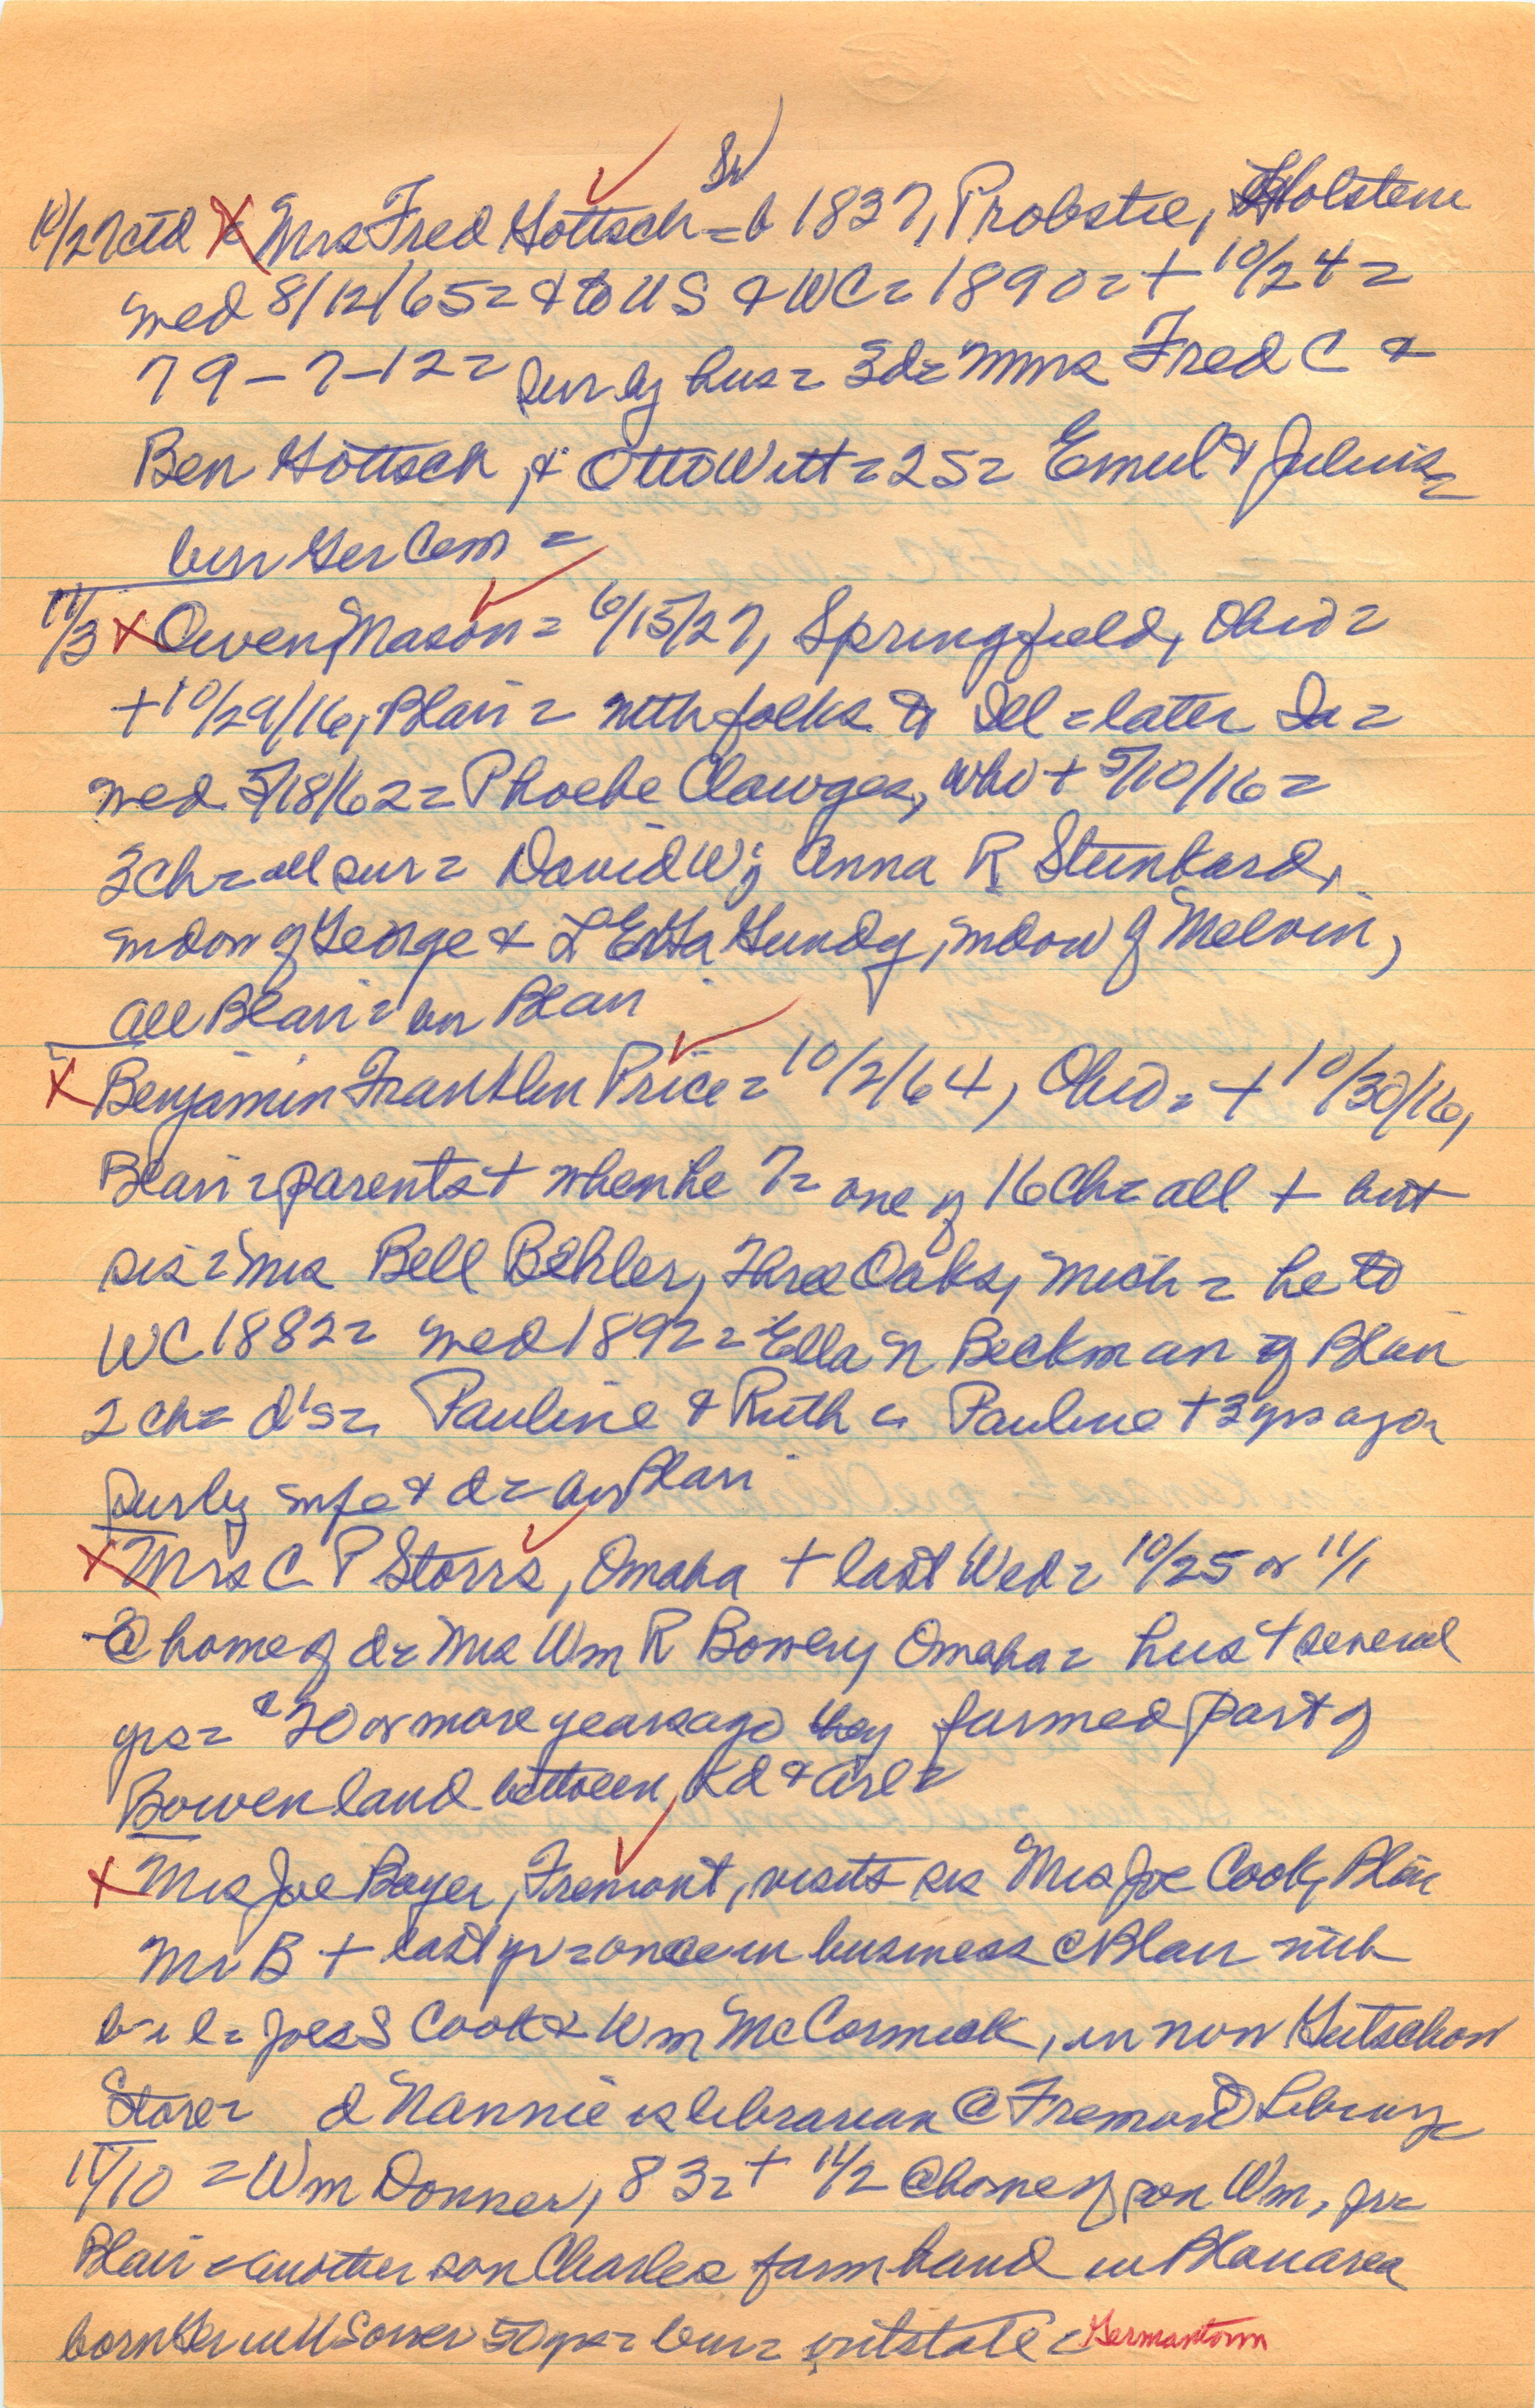 Sr
10/27 ctd X Mrs Fred Gottsch = b 1837, Probstie, Holstein
med 8/12/65 = & to US & WC = 1890 = + 10/24 =
79-7-12 = sur by hus = 3d = Mmes Fred C &
Ben Gottsch, & Otto Witt = 2S = Emil & Julius =
bur Ger Cem =
11/3 X Owen Mason = 6/15/27, Springfield, Ohio =
+ 10/29/16, Blair = with folks to Ill = later Ia =
med 5/18/62 = Phoebe Clawges, who + 5/10/16 =
3 ch = all sur = David W; Anna R Stunkard,
widow of George & L Etta Gundy, widow of Melvin,
all Blair = bur Blair
X Benjamin Franklin Price = 10/2/64, Ohio = + 10/30/16,
Blair = parents + when he 7 = one of 16 ch = all + but
sis = Mrs Bell Behler, Three Oaks, Mich = he to
WC 1882 = med 1892 = Ella N Beckman of Blair
2 ch = d's = Pauline & Ruth = Pauline + 3 yrs ago =
sur by wife & d = bur Blair
X Mrs C P Storrs, Omaha + last Wed = 10/25 or 11/1
@ home of d = Mrs Wm R Bowen, Omaha = hus + several
yrs = 20 or more years ago they farmed part of
Bowen land between Kd & Arl =
X Mrs Joe Boyer, Fremont, visits sis Mrs Joe Cook, Blair
Mr B + last yr = once in business @ Blair with
b-i-l = Joe S Cook & Wm McCormick, in now Gutschow
Store = d Nannie is librarian @ Fremont Library =
11/10 = Wm Donner, 83 = + 11/2 @ home of son Wm, Jr =
Blair = another son Charles farm hand in Blair area
born Ger in US over 50 yrs = bur = outstate = Germantown